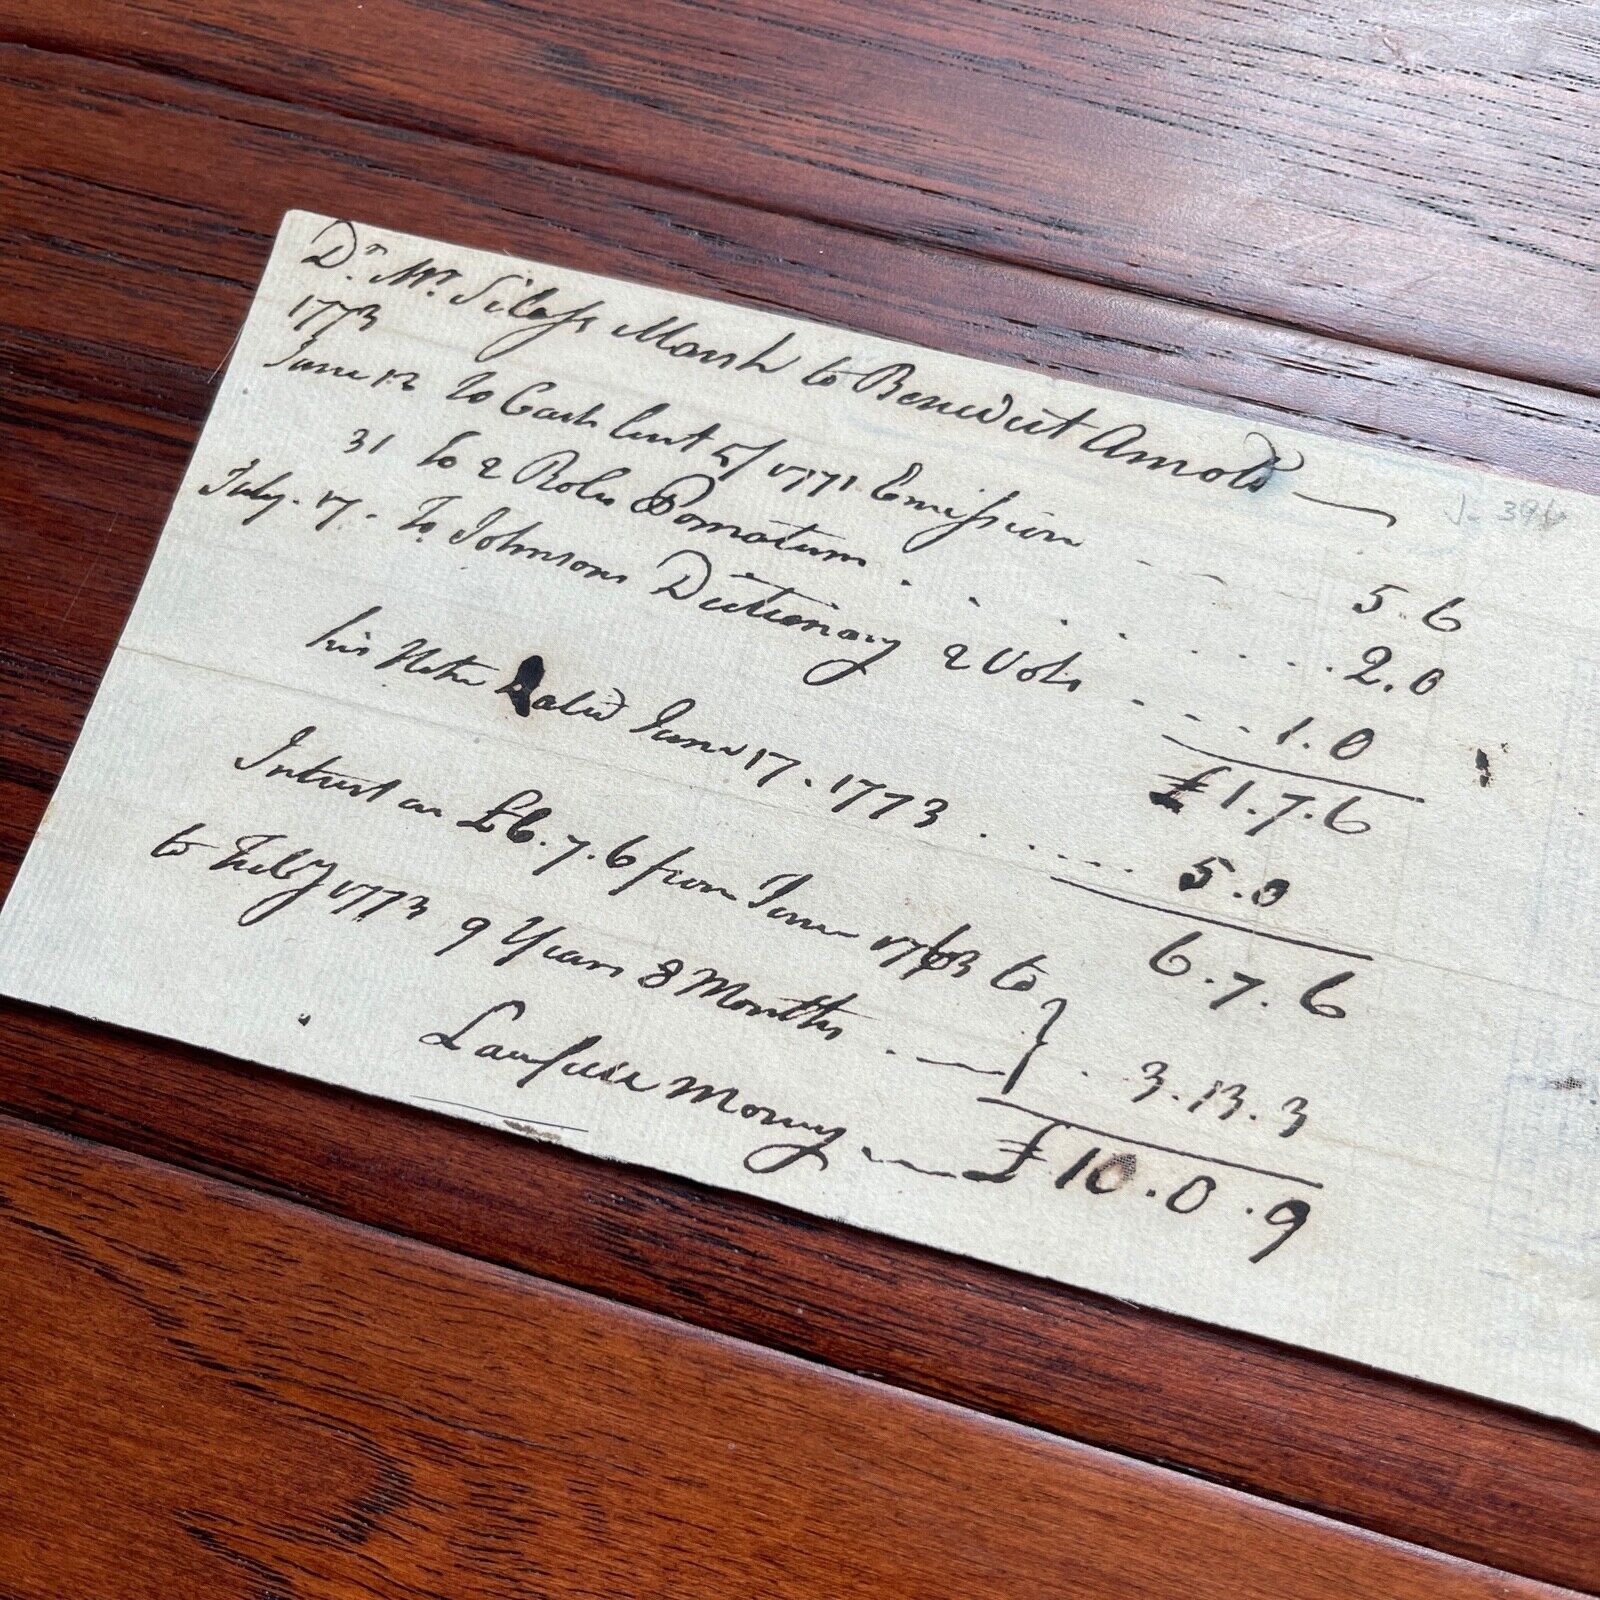 Dr. Mr. Silas Marsh to Benedict Arnold
1773
June 12 To Cash lent of 1771 Emission 5.6
31 to 2 Rolls Pomatum 2.0
July. 17. To Johnsons Dictionary 2 Vols 1.0
£1.7.6
his Note Dated June 17. 1773 5.0
6.7.6
Intrest on £6.7.6 from June 1763 to
to Feby 1773 9 Years 8 Months 3.13.3
Lawfull Money £10.0.9